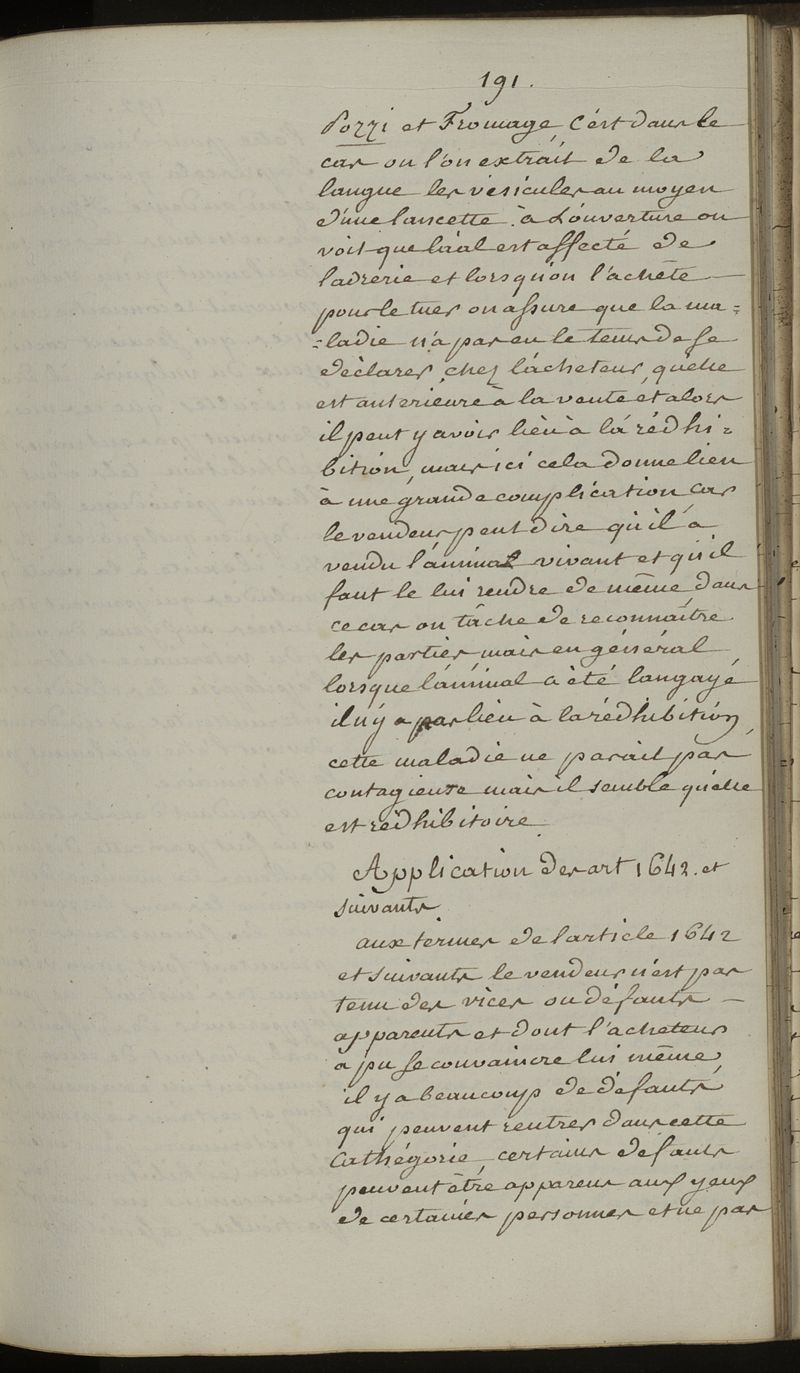 191.
Pozzi et Fromage, c'est dans le
cas ou l'on extrait de la
langue les vésicules au moyen
d'une lancette. à L'ouverture on
voit que l'aal est affecté de
ladrerie et lorsqu'on l'achète
pour le tuer on assure que la ma=
=ladie n'a pas eu le tems de se
déclarer, chez l'acheteur, qu'elle
est antérieure à la vente, et alors
il peut y avoir lieu à la rédhi=
bition, mais ici cela donne lieu
à une grande complication, car
le vendeur peut dire qu'il a
vendu l'animal vivant et qu'il
faut le lui rendre de même, dans
ce cas on tâche de reconnaître
les parties mais en général
lorsque l'animal a été langayé
il n'y a pas lieu à la rédhibition,
cette maladie ne parait pas
contagieuse mais il semble qu'elle
est rédhibitoire.
Application des art 1642. et
suivants
aux termes de l'article 1642
et suivants le vendeur n'est pas
tenu des vices ou défauts —
apparents et dont l'acheteur
a pu se convaincre lui même,
il y a beaucoup de défauts
qui peuvent rentrer dans cette
Cathégorie, certains défauts
peuvent être apparens aux yeux
de certaines personnes et ne pas